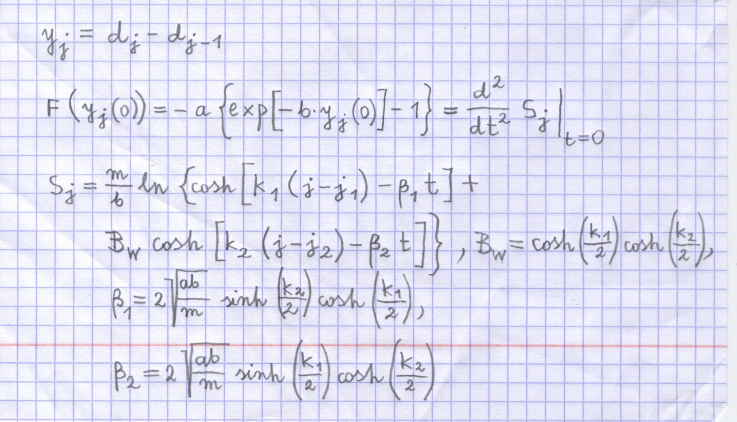 y_j = d_j - d_{j-1}
F(y_j(0)) = -a {exp[-b·y_j(0)] - 1} = d²/dt² S_j |_{t=0}
S_j = m/b ln {cosh[k_1(j-j_1) - β_1 t] +
B_w cosh[k_2(j-j_2) - β_2 t]}, B_w = cosh(k_1/2) cosh(k_2/2),
β_1 = 2 √(ab/m) sinh(k_2/2) cosh(k_1/2),
β_2 = 2 √(ab/m) sinh(k_1/2) cosh(k_2/2)